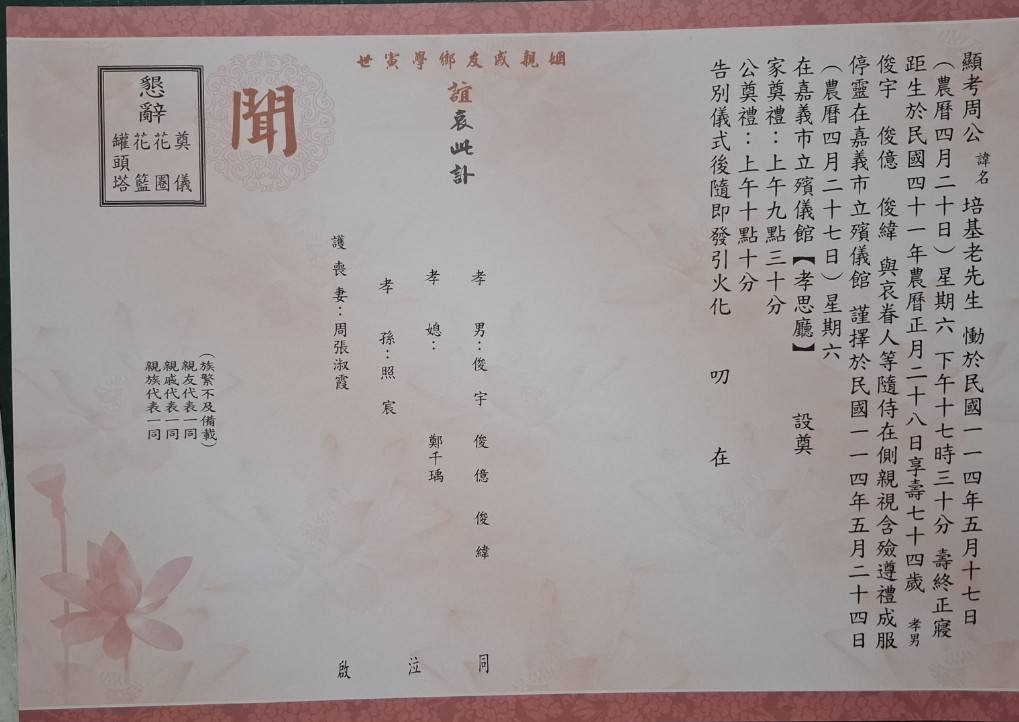 顯考周公諱名培基老先生 慟於民國一一四年五月十七日
(農曆四月二十日)星期六 下午十七時三十分 壽終正寢
距生於民國四十一年農曆正月二十八日享壽七十四歲 孝男
俊宇 俊億 俊緯 與哀眷人等隨侍在側親視含殮遵禮成服
停靈在嘉義市立殯儀館 謹擇於民國一一四年五月二十四日
(農曆四月二十七日)星期六
在嘉義市立殯儀館【孝思廳】 設奠
家奠禮:上午九點三十分
公奠禮:上午十點十分
告別儀式後隨即發引火化 叨 在
姻親戚友鄉學寅世
誼哀此訃
聞
懇辭
奠儀
花圈
花籃
罐頭塔
孝 男:俊宇 俊億 俊緯
孝 媳: 鄭千瑀
孝 孫:照宸
護喪妻:周張淑霞
同
泣
啟
(族繁不及備載)
親友代表一同
親戚代表一同
親族代表一同